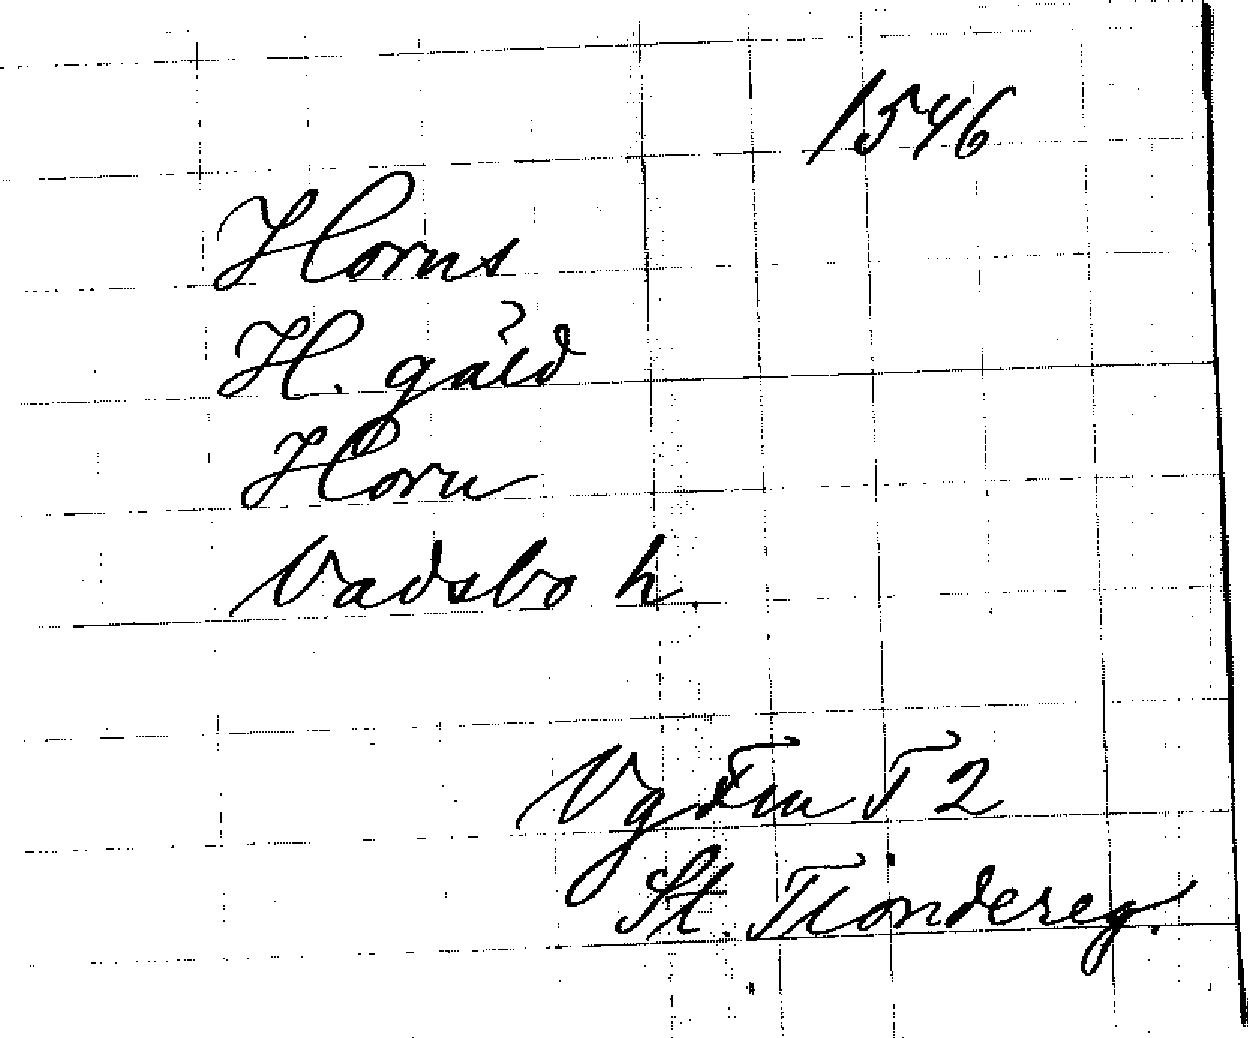 1546
Horns
H. gäld
Horn
Vadsbo h
Vg T 2
St. Tiondereg.